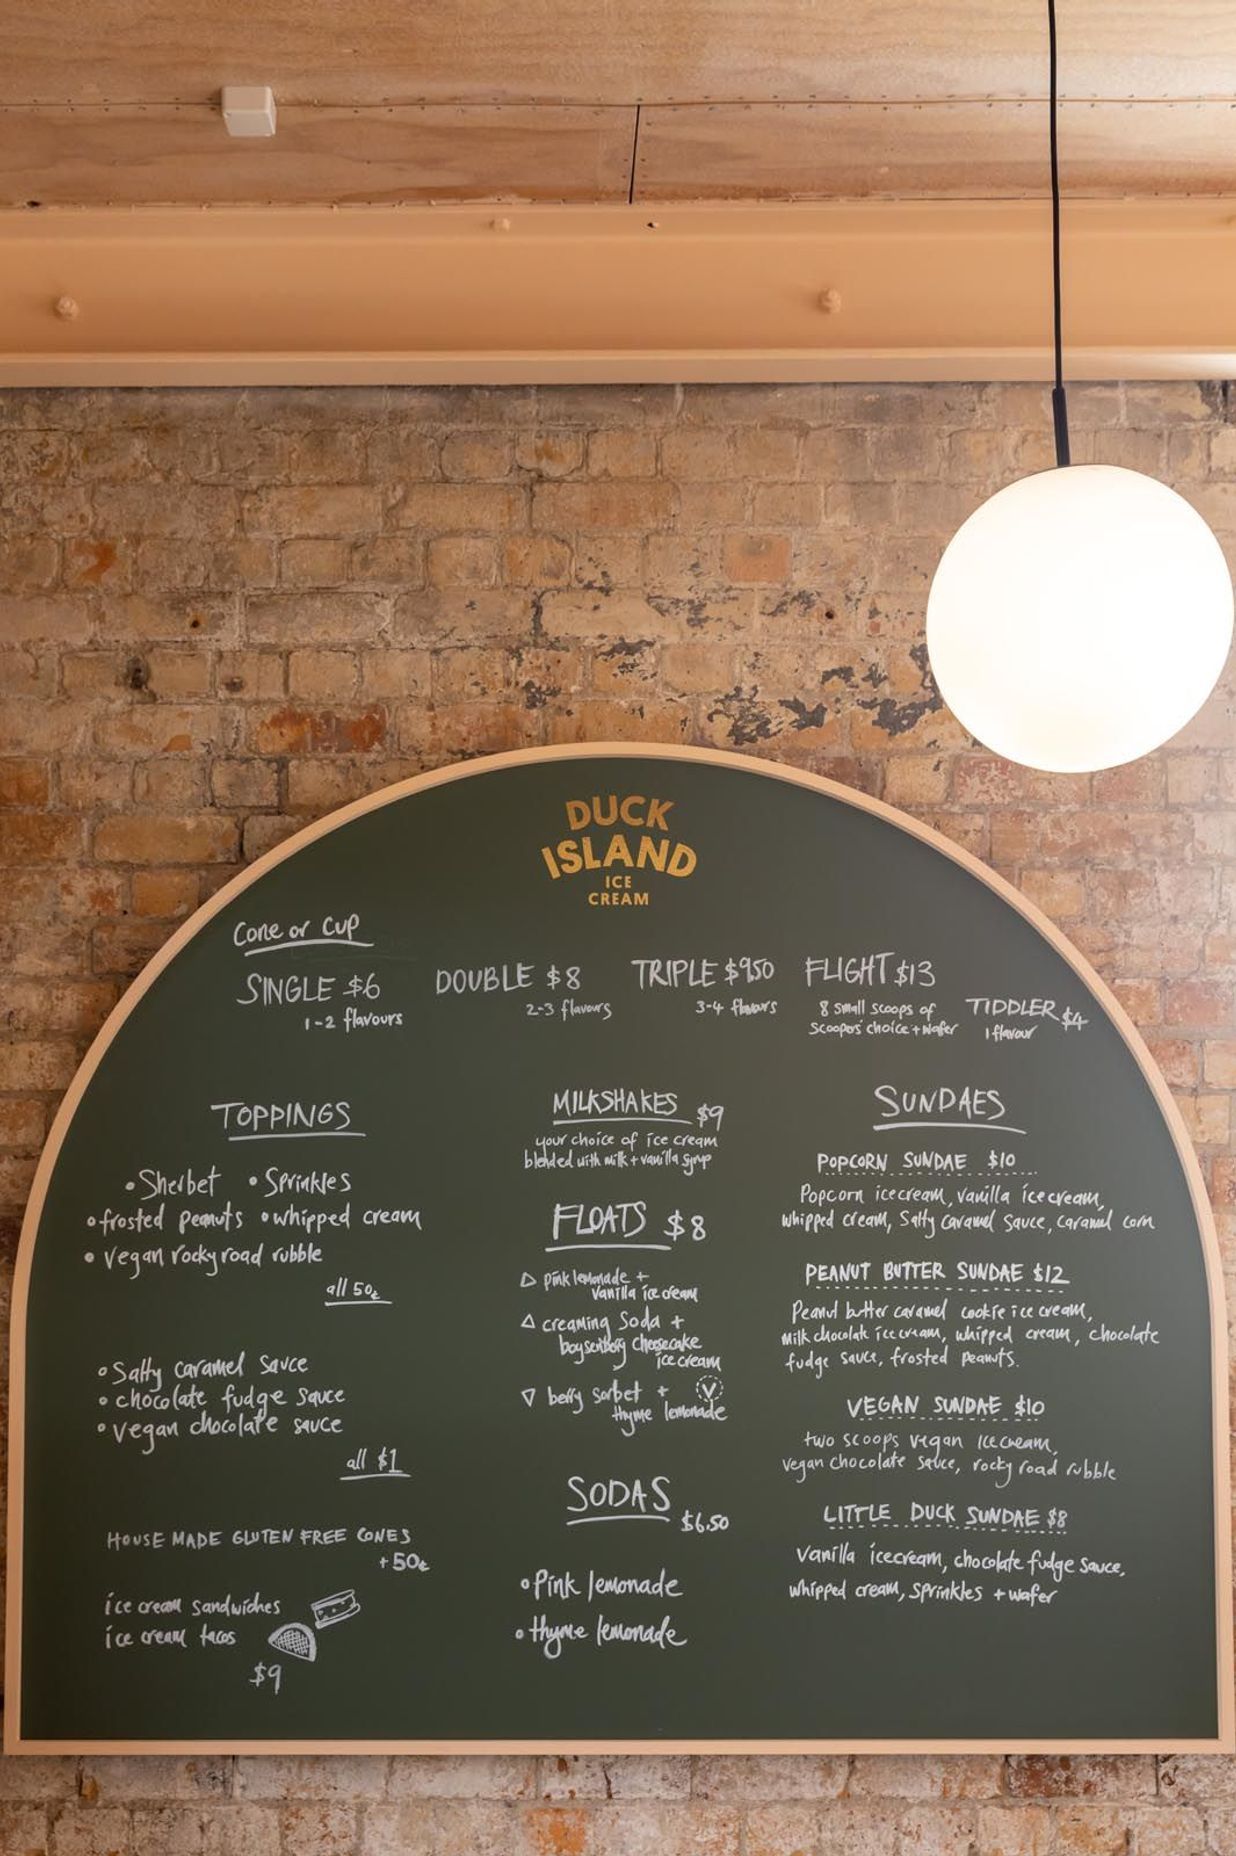 DUCK
ISLAND
ICE
CREAM
Cone or Cup
SINGLE $6
1-2 flavours
DOUBLE $8
2-3 flavours
TRIPLE $9.50
3-4 flavours
FLIGHT $13
8 small scoops of
scoopers' choice + wafer
TIDDLER $4
1 flavour
TOPPINGS
• Sherbet • Sprinkles
• frosted peanuts • whipped cream
• vegan rocky road rubble
all 50¢
• Salty caramel sauce
• chocolate fudge sauce
• vegan chocolate sauce
all $1
HOUSE MADE GLUTEN FREE CONES
+ 50¢
ice cream sandwiches
ice cream tacos
$9
MILKSHAKES $9
your choice of ice cream
blended with milk + vanilla syrup
FLOATS $8
pink lemonade +
vanilla ice cream
creaming Soda +
boysenberry cheesecake
ice cream
berry sorbet + V
thyme lemonade
SODAS
$6.50
• Pink lemonade
• thyme lemonade
SUNDAES
POPCORN SUNDAE $10
Popcorn icecream, vanilla icecream,
whipped cream, Salty caramel sauce, caramel corn
PEANUT BUTTER SUNDAE $12
Peanut butter caramel cookie ice cream,
milk chocolate ice cream, whipped cream, chocolate
fudge sauce, frosted peanuts.
VEGAN SUNDAE $10
two scoops vegan icecream,
vegan chocolate sauce, rocky road rubble
LITTLE DUCK SUNDAE $8
Vanilla icecream, chocolate fudge sauce,
whipped cream, sprinkles + wafer